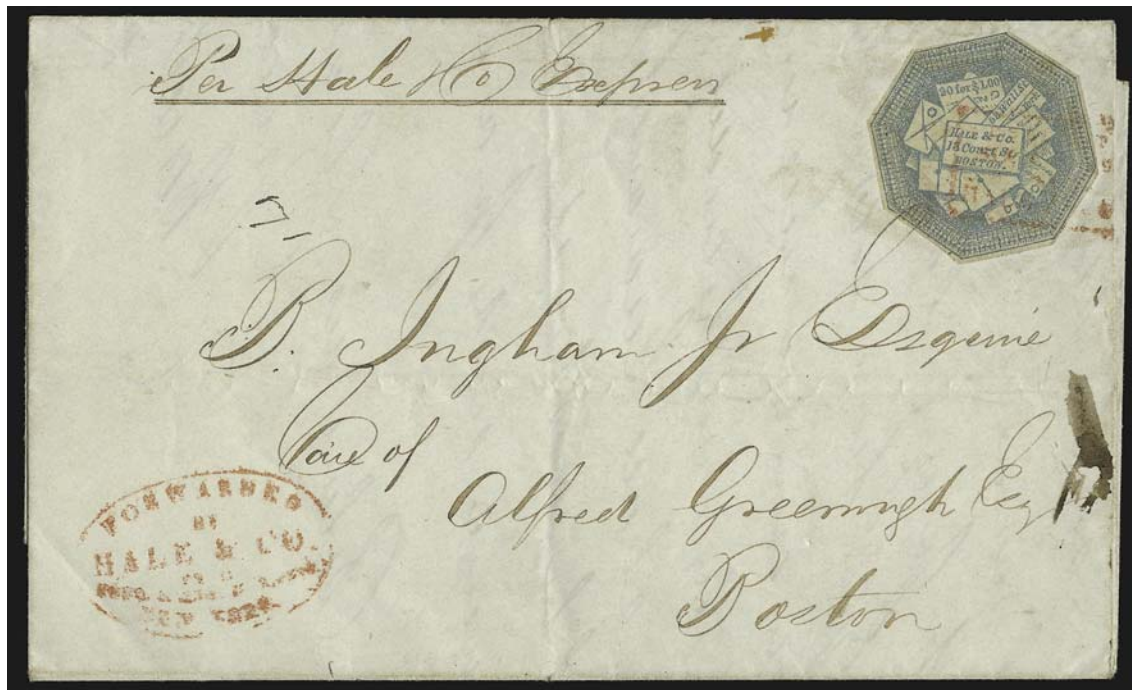 Per Hale & Co Express
20 for $1.00
HALE & CO.
13 Court St.
BOSTON.
B. Ingham Jr Esquire
Care of
Alfred Greenough Esq
Boston
FORWARDED
BY
HALE & CO.
FROM
NEW YORK